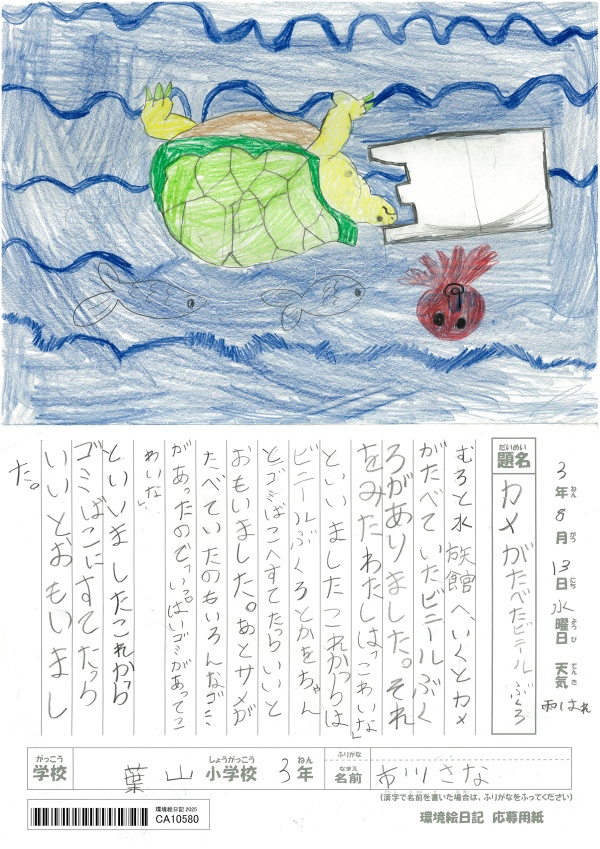 3年8月13日水曜日 天気 雨はれ
ねん がつ にち ようび てんき
だいめい
題名 カメがたべたビニールぶくろ
むろと水族館へ、いくとカメ
がたべていたビニールぶく
ろがありました。それ
をみたわたしは「こわいな」
といいましたこれからは
ビニールぶくろとかをちゃん
とゴミばこへすてたらいいと
おもいました。あとサメが
たべていたのもいろんなゴミ
があったので「いっぱいゴミがあってこ
わいな」
といいましたこれから
ゴミばこにすてたら
いいとおもいまし
た。
がっこう しょうがっこう ねん
学校 葉山小学校 3年
ふりがな
なまえ
名前 市川さな
(漢字で名前を書いた場合は、ふりがなをふってください)
環境絵日記 2025
CA10580
環境絵日記 応募用紙